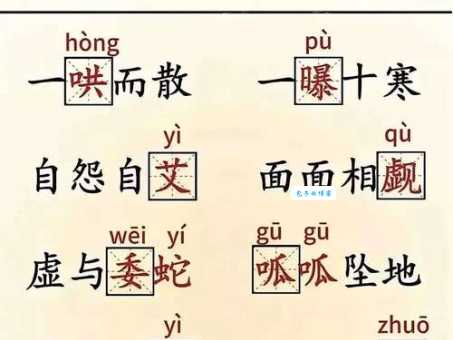 hòng pù
一哄而散 一曝十寒
yì qù
自怨自艾 面面相觑
wēi yí gū gū
虚与委蛇 呱呱坠地
yì zhuō